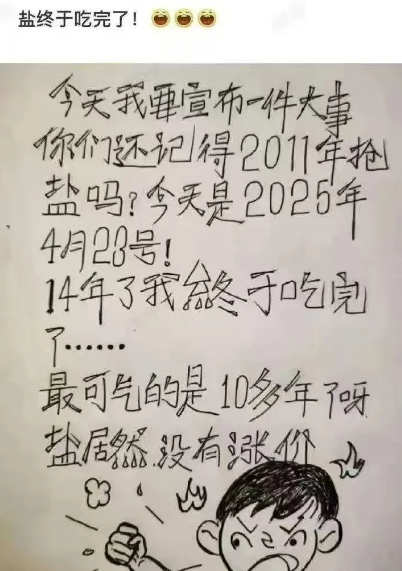 盐终于吃完了！😄😄😄
今天我要宣布一件大事
你们还记得2011年抢
盐吗?今天是2025年
4月23号!
14年了我终于吃完
了……
最可气的是10多年了呀
盐居然没有涨价